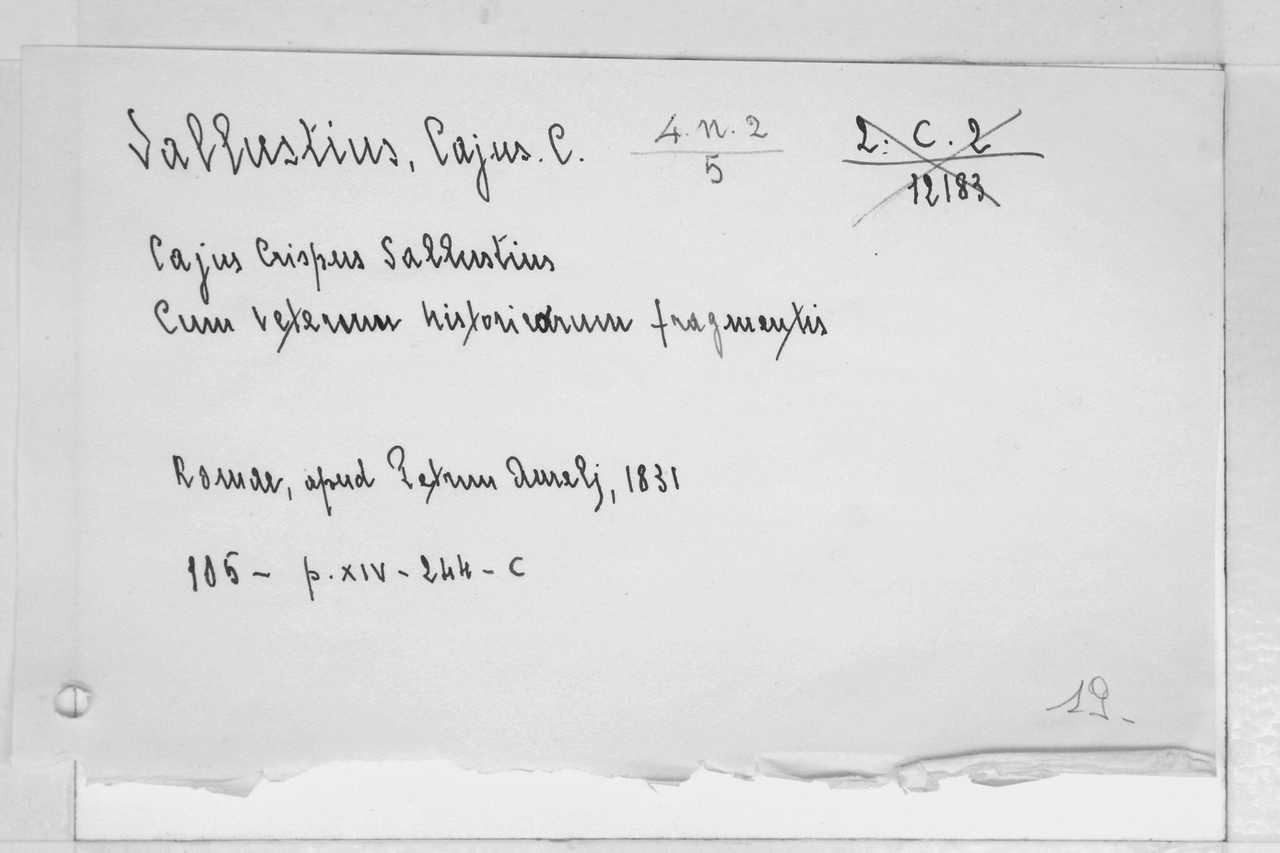 Sallustius, Cajus. C. 4. n. 2
5
2. C. 2
12183
Cajus Crispus Sallustius
Cum veterum historicorum fragmentis
Romae, apud Petrum Aurelj, 1831
16⁵ - p. XIV - 244 - C
19.